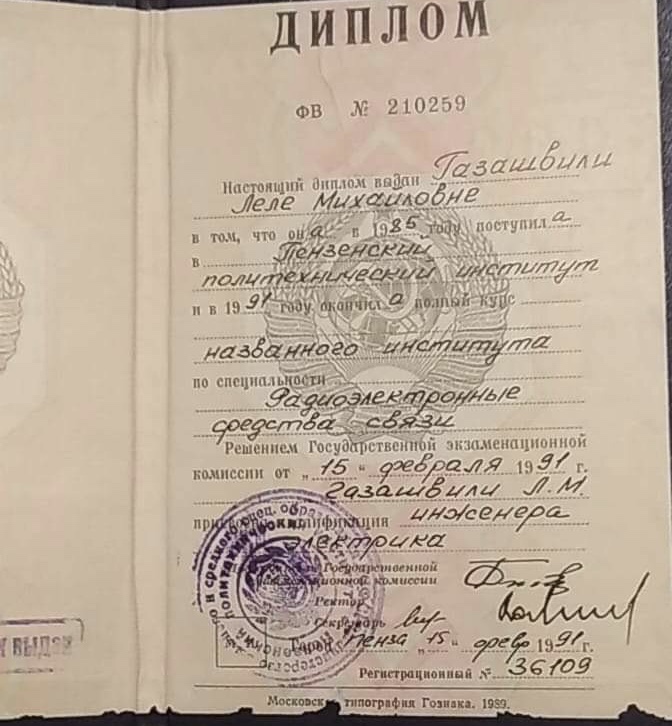 ДИПЛОМ
ФВ № 210259
Настоящий диплом выдан Газашвили
Леле Михайловне
в том, что она в 1985 году поступила
в Пензенский
политехнический институт
и в 1991 году окончила полный курс
названного института
по специальности
Радиоэлектронные
средства связи
Решением Государственной экзаменационной
комиссии от „15“ февраля 1991 г.
Газашвили Л.М.
квалификация инженера
электрика
Государственной
экзаменационной комиссии
Ректор
Секретарь
Город Пенза „15“ февр 1991 г.
Регистрационный № 36109
Московская типография Гознака. 1989.
ВЫДАН